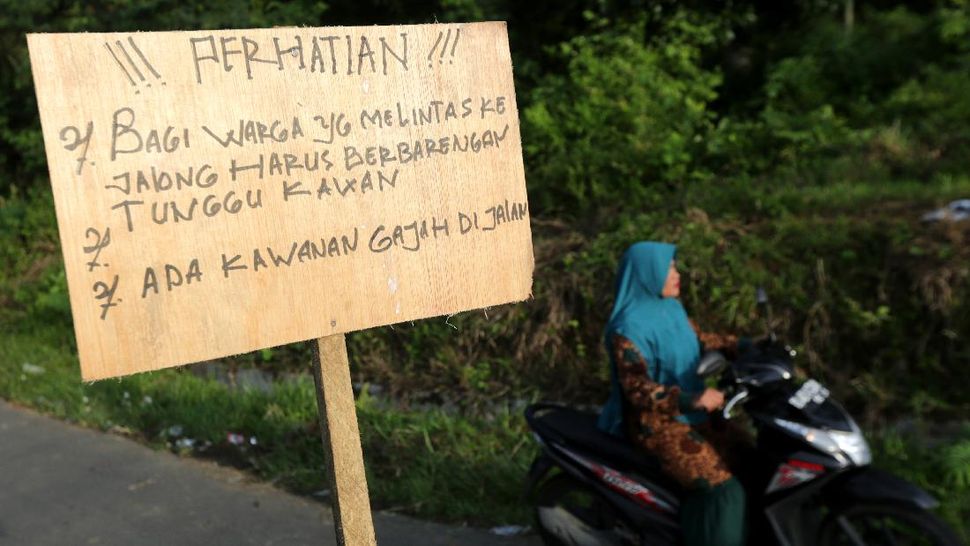 !!! PERHATIAN !!!
BAGI WARGA YG MELINTAS KE
JALONG HARUS BERBARENGAN
TUNGGU KAWAN
ADA KAWANAN GAJAH DI JALAN